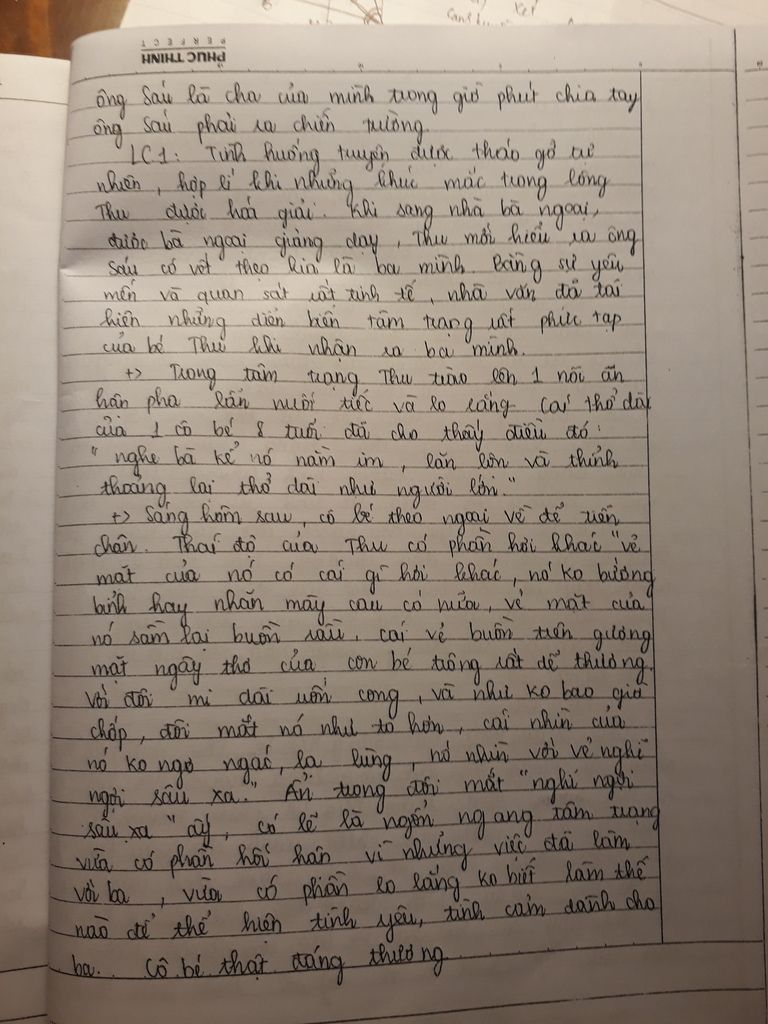 PHUC THINH
PERFECT
ông Sáu là cha của mình trong giờ phút chia tay
ông Sáu phải ra chiến trường.
LC1: Tình huống truyện được tháo gỡ tự
nhiên, hợp lí khi những khúc mắc trong lòng
Thu được hoá giải. Khi sang nhà bà ngoại,
được bà ngoại giảng dạy, Thu mới hiểu ra ông
Sáu có vết thẹo kia là ba mình. Bằng sự yêu
mến và quan sát rất tinh tế, nhà văn đã tái
hiện những diễn biến tâm trạng rất phức tạp
của bé Thu khi nhận ra ba mình.
+> Trong tâm trạng Thu trào lên 1 nỗi ân
hận pha lẫn nuối tiếc và lo lắng. Cái thở dài
của 1 cô bé 8 tuổi đã cho thấy điều đó:
" nghe bà kể nó nằm im, lăn lộn và thỉnh
thoảng lại thở dài như người lớn."
+> Sáng hôm sau, cô bé theo ngoại về để tiễn
chân. Thái độ của Thu có phần hơi khác "vẻ
mặt của nó có cái gì hơi khác, nó ko bướng
bỉnh hay nhăn mày cau có nữa, vẻ mặt của
nó sầm lại buồn rầu, cái vẻ buồn trên gương
mặt ngây thơ của con bé trông rất dễ thương.
Với đôi mi dài uốn cong, và như ko bao giờ
chớp, đôi mắt nó như to hơn, cái nhìn của
nó ko ngơ ngác, lạ lùng, nó nhìn với vẻ nghĩ
ngợi sâu xa." Ẩn trong đôi mắt "nghĩ ngợi
sâu xa" ấy, có lẽ là ngổn ngang tâm trạng
vừa có phần hối hận vì những việc đã làm
với ba, vừa có phần lo lắng ko biết làm thế
nào để thể hiện tình yêu, tình cảm dành cho
ba. Cô bé thật đáng thương